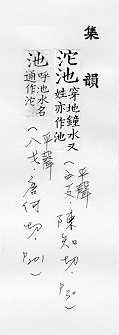 集韻
沱池穿地鐘水又
姓亦作池
(平聲
陳知切.P30)
池呼池水名
通作沱
(平聲
八戈.唐何切.P201)